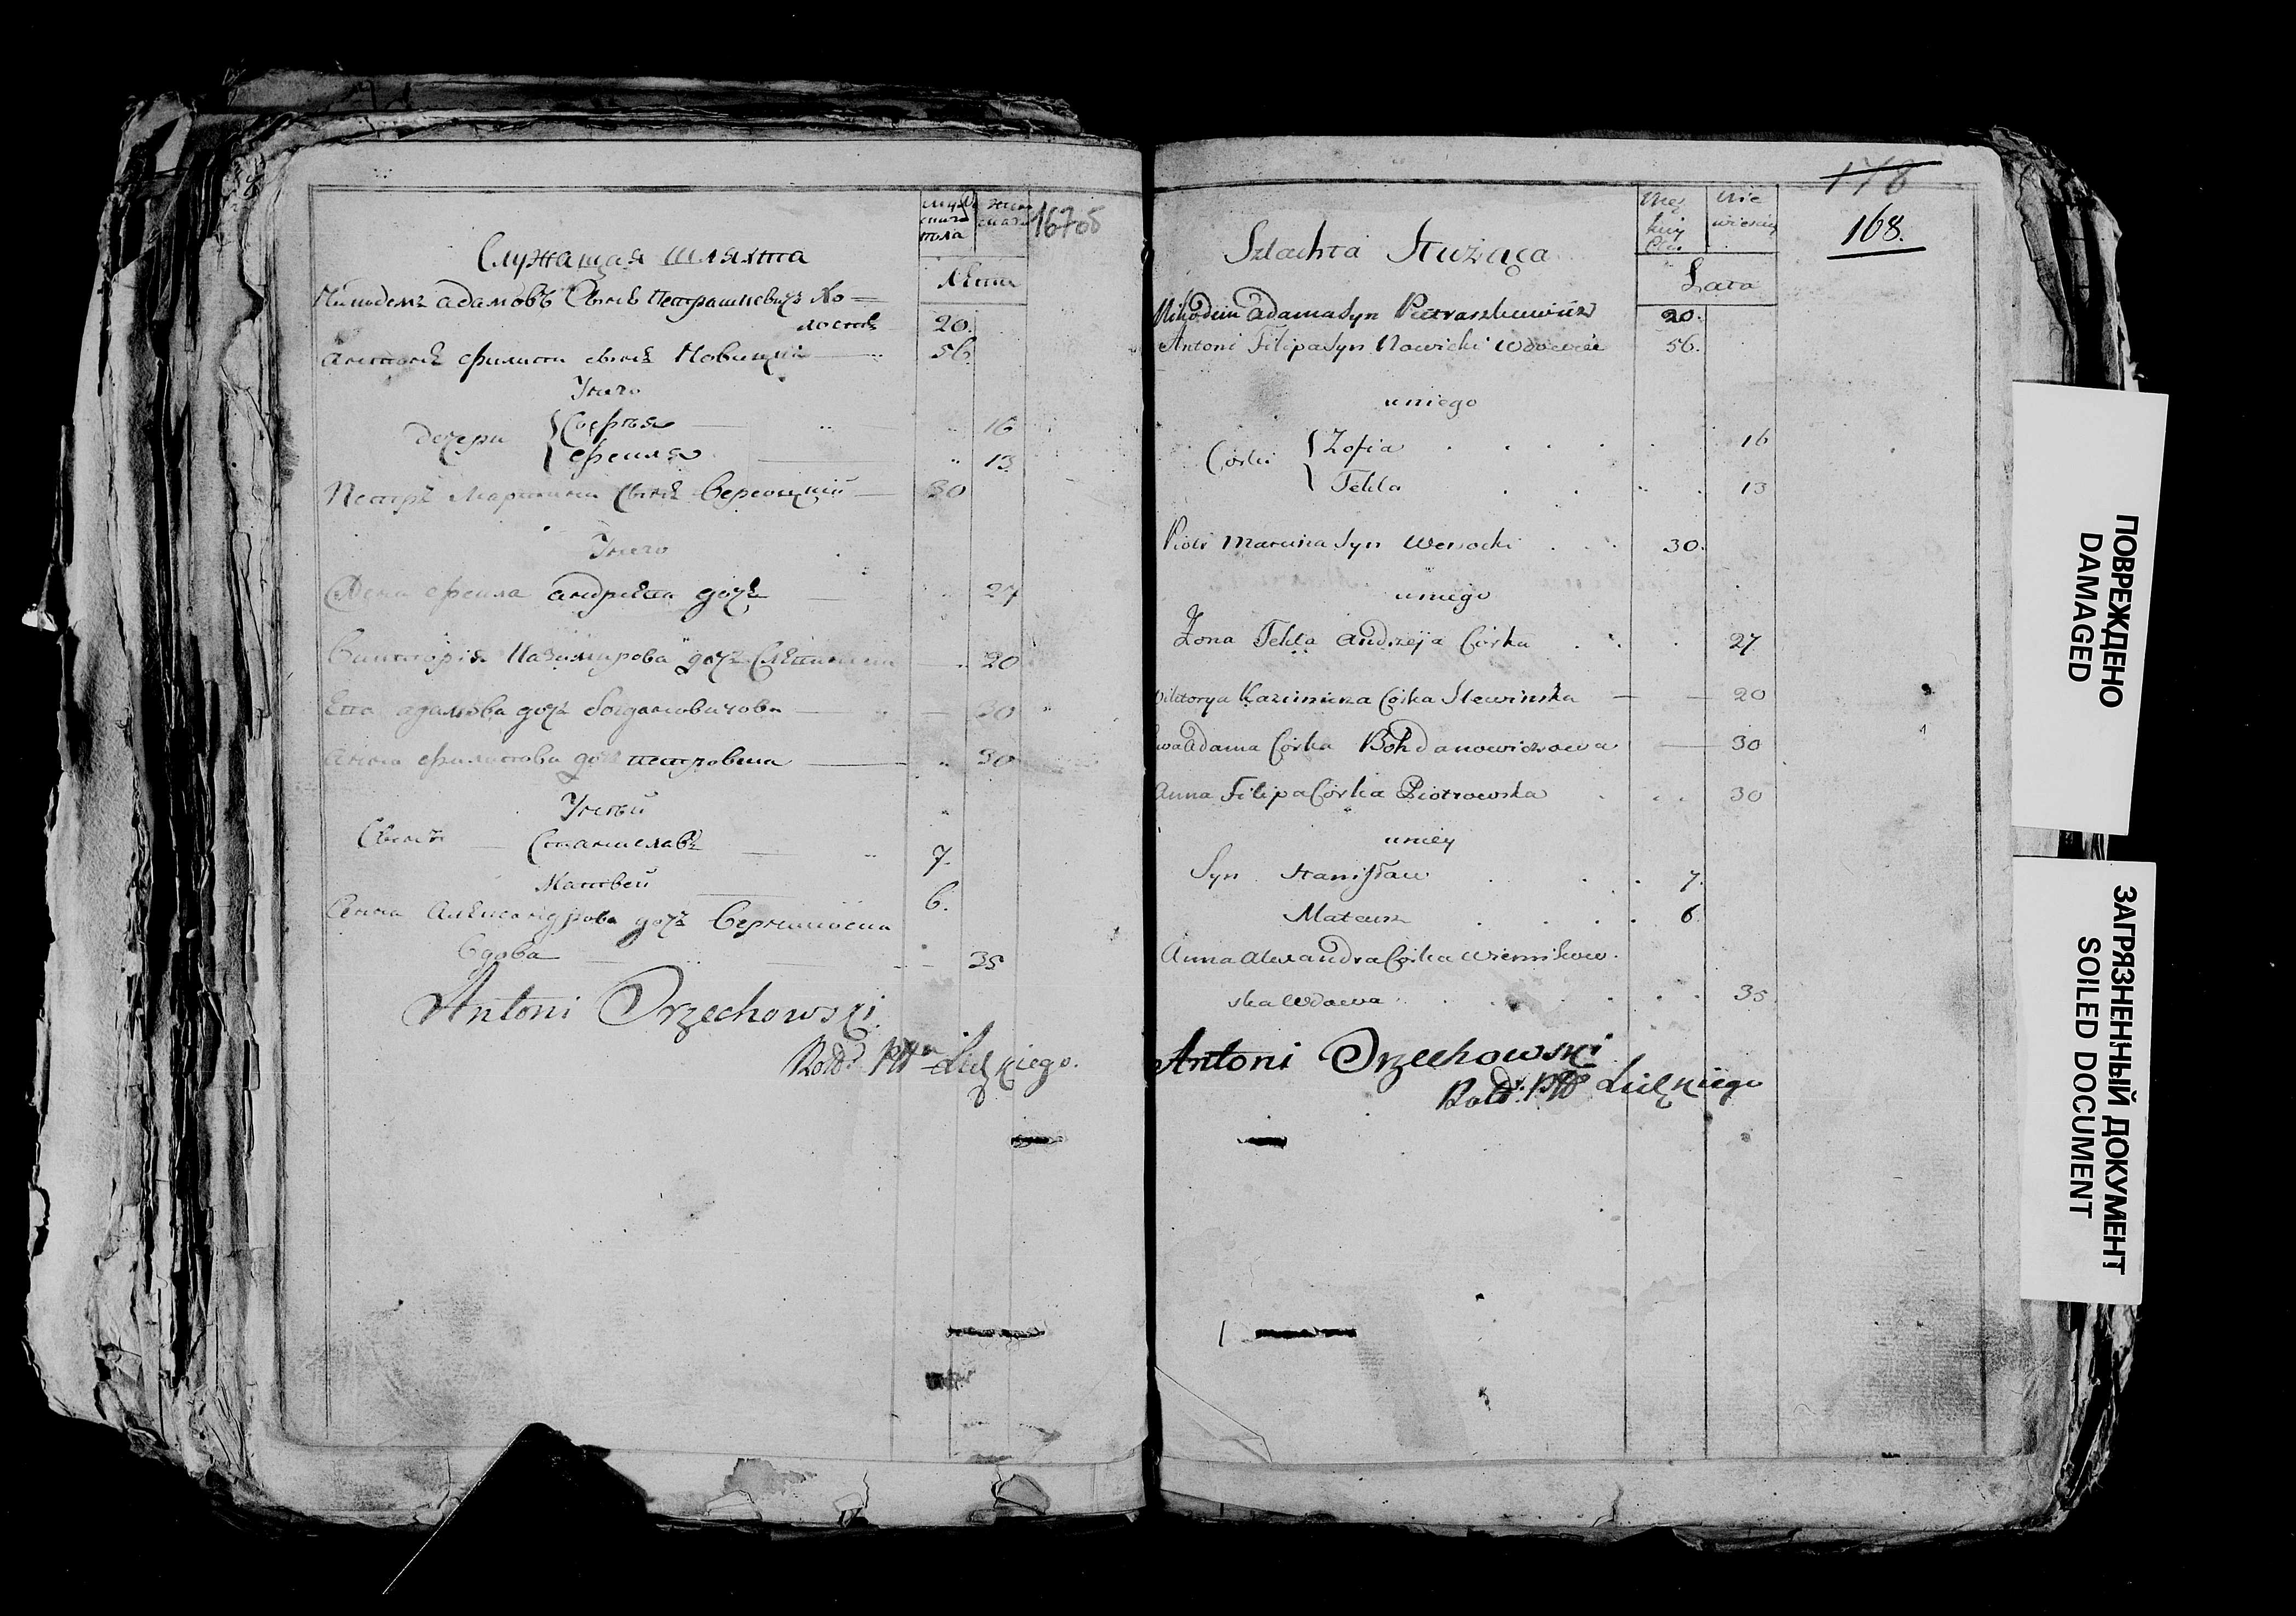 167об
Служащая шляхта
мужеска пола
женска
Лѣта
Никодемъ Адамовъ Сынъ Петрашкевичъ Хо=
лостъ 20.
Антонъ Филипа сынъ Новицкій 56
У него
дочери Софья 16
Фекля 13
Петръ Мартина Сынъ Версоцкій 30
У него
Жена Фекла Андрѣя дочь 27
Викторія Казимирова дочь Слѣвинска 20
Ева Адамова дочь Богдановичова 30
Анна Филипова дочь Петровска 30
У ней
Сынъ Станиславъ 7.
Матвей 6.
Анна Александрова дочь
Вдова 35
Antoni Orzechowski
Ptu Lidzkiego.
176
168.
Szlachta Służąca
Męzkiey Płci
Niewieściey
Lata
Nikodem Adama Syn Pietraszkiewicz 20.
Antoni Filipa Syn Nowicki Wdowiec 56.
u niego
Córki Zofia 16
Tekla 13
Piotr Marcina Syn Wersocki 30.
u niego
Żona Tekla Andrzeja Córka 27
Wiktorya Kazimirza Córka Slewinska 20
Ewa Adama Córka Bohdanowiczowa 30
Anna Filipa Córka Piotrowska 30
u niey
Syn Stanisław 7.
Mateusz 6
Anna Alexandra Córka Wiernikow-
ska Wdowa 35
Antoni Orzechowski
Ptu Lidzkiego
ПОВРЕЖДЕНО
DAMAGED
ЗАГРЯЗНЕННЫЙ ДОКУМЕНТ
SOILED DOCUMENT